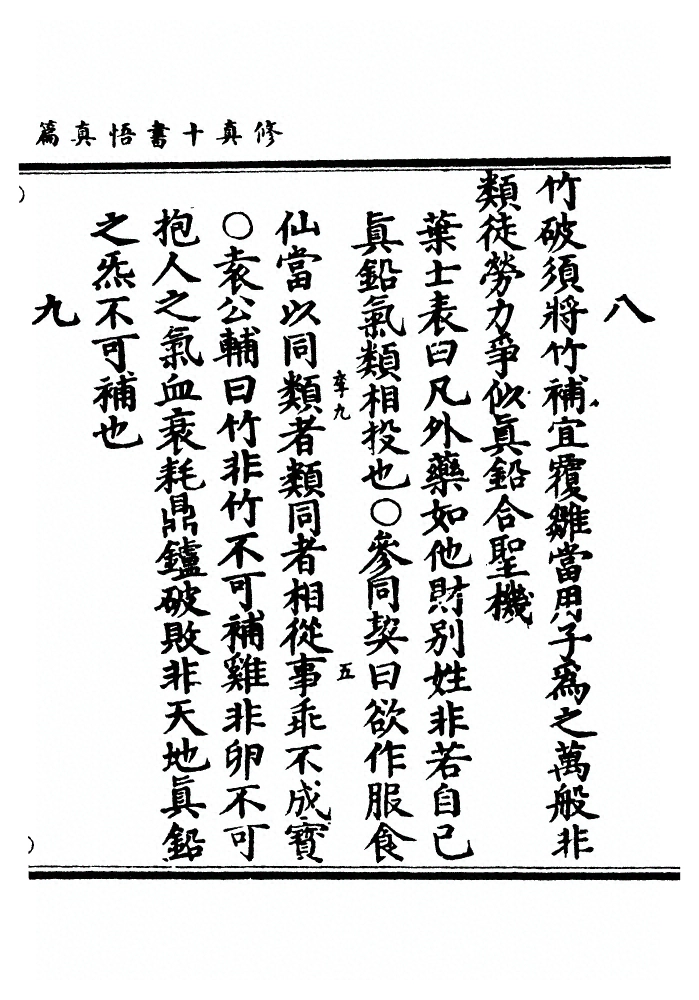 修真十書悟真篇
八
竹破須將竹補宜覆雞當用子爲之萬般非
類徒勞力爭似眞鉛合聖機
葉士表曰凡外藥如他財別姓非若自己
眞鉛氣類相投也○參同契曰欲作服食
仙當以同類者類同者相從事乖不成寶
○袁公輔曰竹非竹不可補雞非卵不可
抱人之氣血衰耗鼎鑪破敗非天地眞鉛
之炁不可補也
九
五